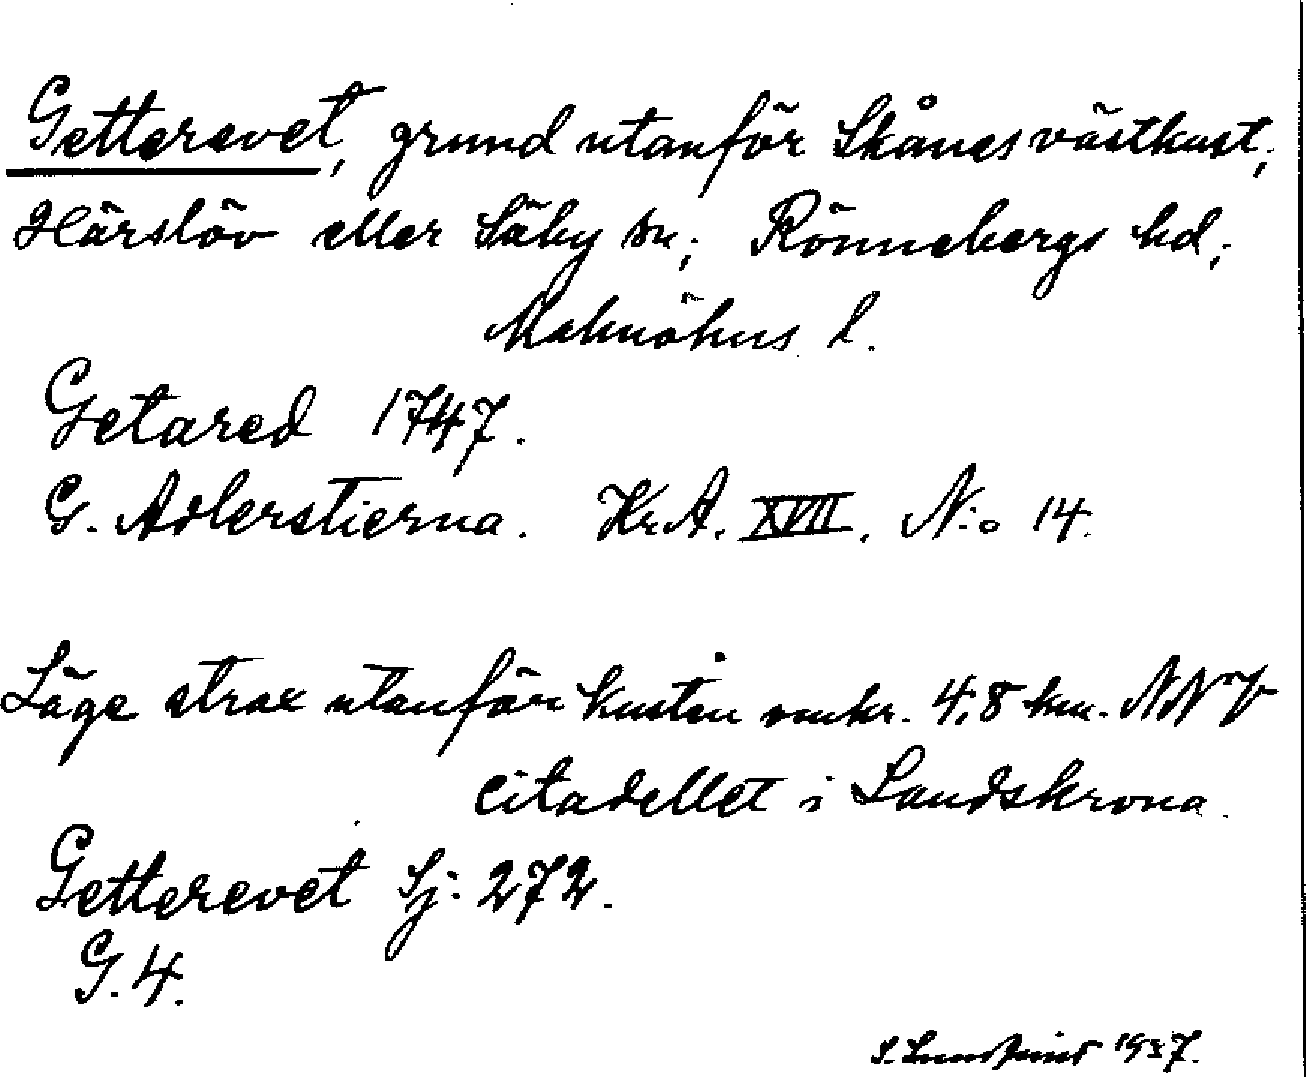 Getterevet, grund utanför Skånes västkust;
Härslöv eller Säby sn; Rönnebergs hd;
Malmöhus l.
Getared 1747.
G. Adlerstierna. Kr.A. XVII. N:o 14.
Läge strax utanför kusten omkr. 4,8 km. NNV
citadellet i Landskrona.
Getterevet Sj: 272.
G. 4.
S. 1937.